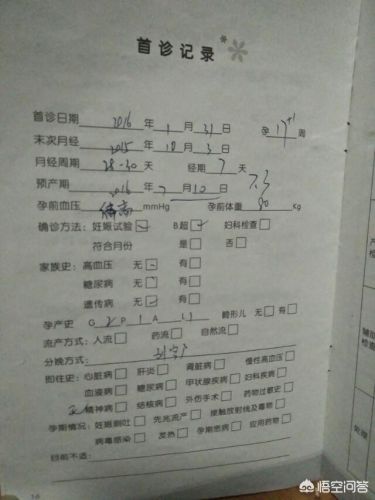 首诊记录
首诊日期 2016 年 1 月 31 日 孕 17+1 周
末次月经 2015 年 10 月 3 日
月经周期 28-30 天 经期 7 天
预产期 2016 年 7 月 10 日 7.3
孕前血压 偏高 mmHg 孕前体重 90 kg
确诊方法：妊娠试验☑ B超☑ 妇科检查□
符合月份 是□ 否□
家族史：高血压 无☑ 有□
糖尿病 无☑ 有□
遗传病 无☑ 有□
孕产史 G 2 P 1 A L 1 畸形儿 无□ 有□
流产方式：人流□ 药流□ 自然流□
分娩方式： 剖宫产
即往史：心脏病□ 肝炎□ 肾脏病□ 慢性高血压□
血液病□ 糖尿病□ 甲状腺疾病□ 妇科疾病□
无 精神病□ 结核病□ 外伤手术□ 药物过敏史□
孕期情况：妊娠剧吐□ 先兆流产□ 接触放射线及毒物□
病毒感染□ 发热□ 孕期患病□ 应用药物□
目前不适：
14
悟空问答